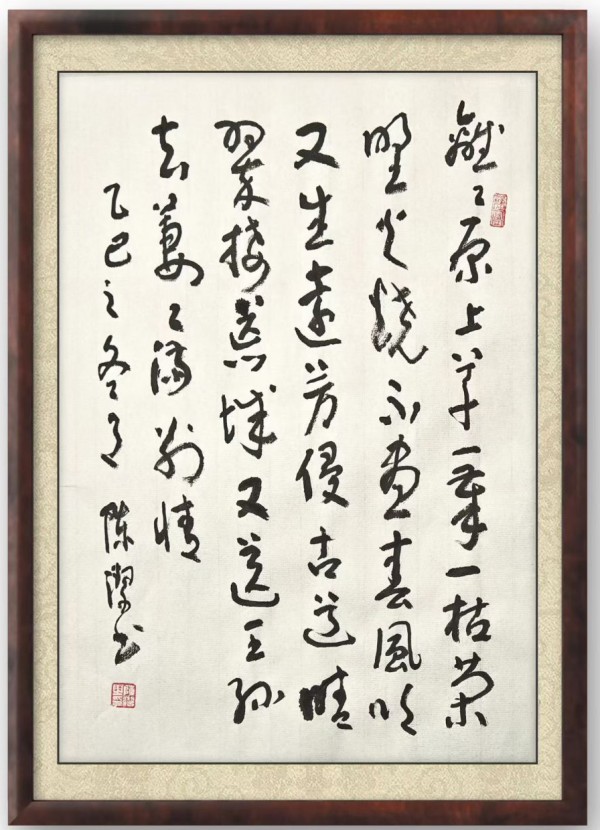 離々原上草一歲一枯榮
野火燒不盡春風吹
又生遠芳侵古道晴
翠接荒城又送王孫
去萋々滿別情
乙巳之冬月 陳潔书